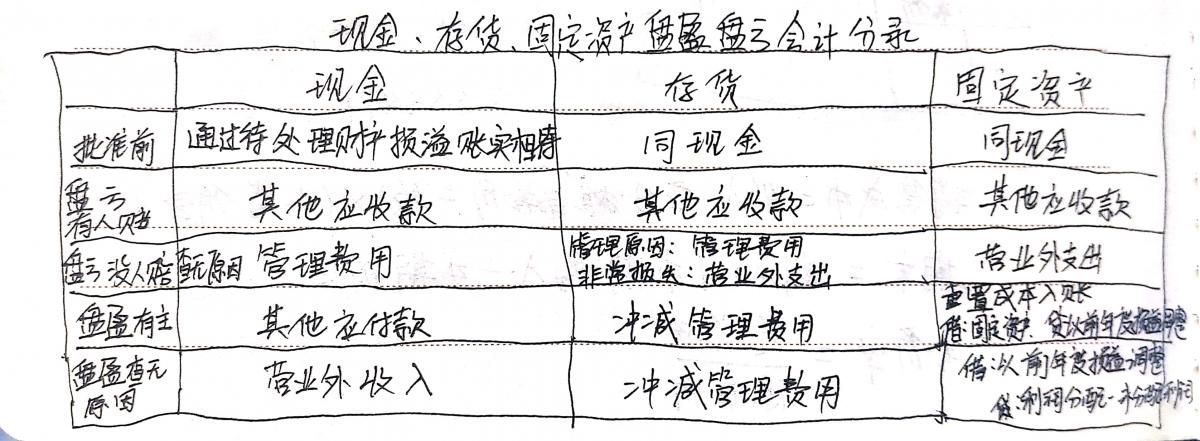 现金、存货、固定资产盘盈盘亏会计分录
现金 存货 固定资产
批准前 通过待处理财产损溢账实相符 同现金 同现金
盘亏
有人赔 其他应收款 其他应收款 其他应收款
盘亏没人赔 查无原因 管理费用 管理原因：管理费用
非常损失：营业外支出 营业外支出
盘盈有主 其他应付款 冲减管理费用 重置成本入账
借：固定资产 贷以前年度损益调整
盘盈查无
原因 营业外收入 冲减管理费用 借：以前年度损益调整
贷：利润分配-未分配利润